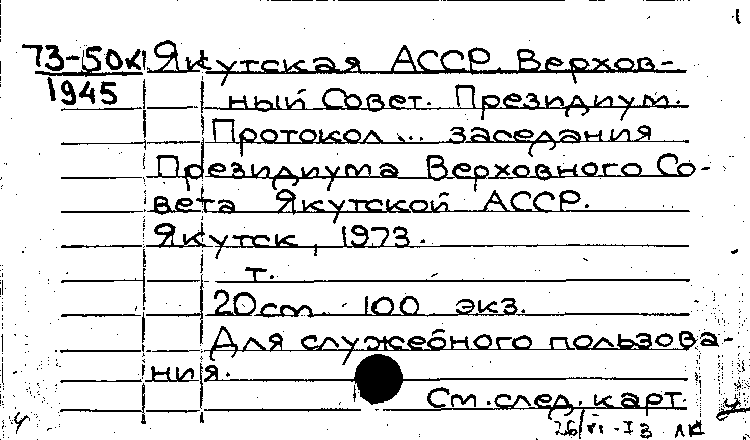 1
73-50к Якутская АССР. Верхов-
1945 ный Совет. Президиум.
Протокол ... заседания
Президиума Верховного Со-
вета Якутской АССР.
Якутск, 1973.
т.
20 cm 100 экз.
Для служебного пользова-
ния.
См. след. карт.
26/VI-73